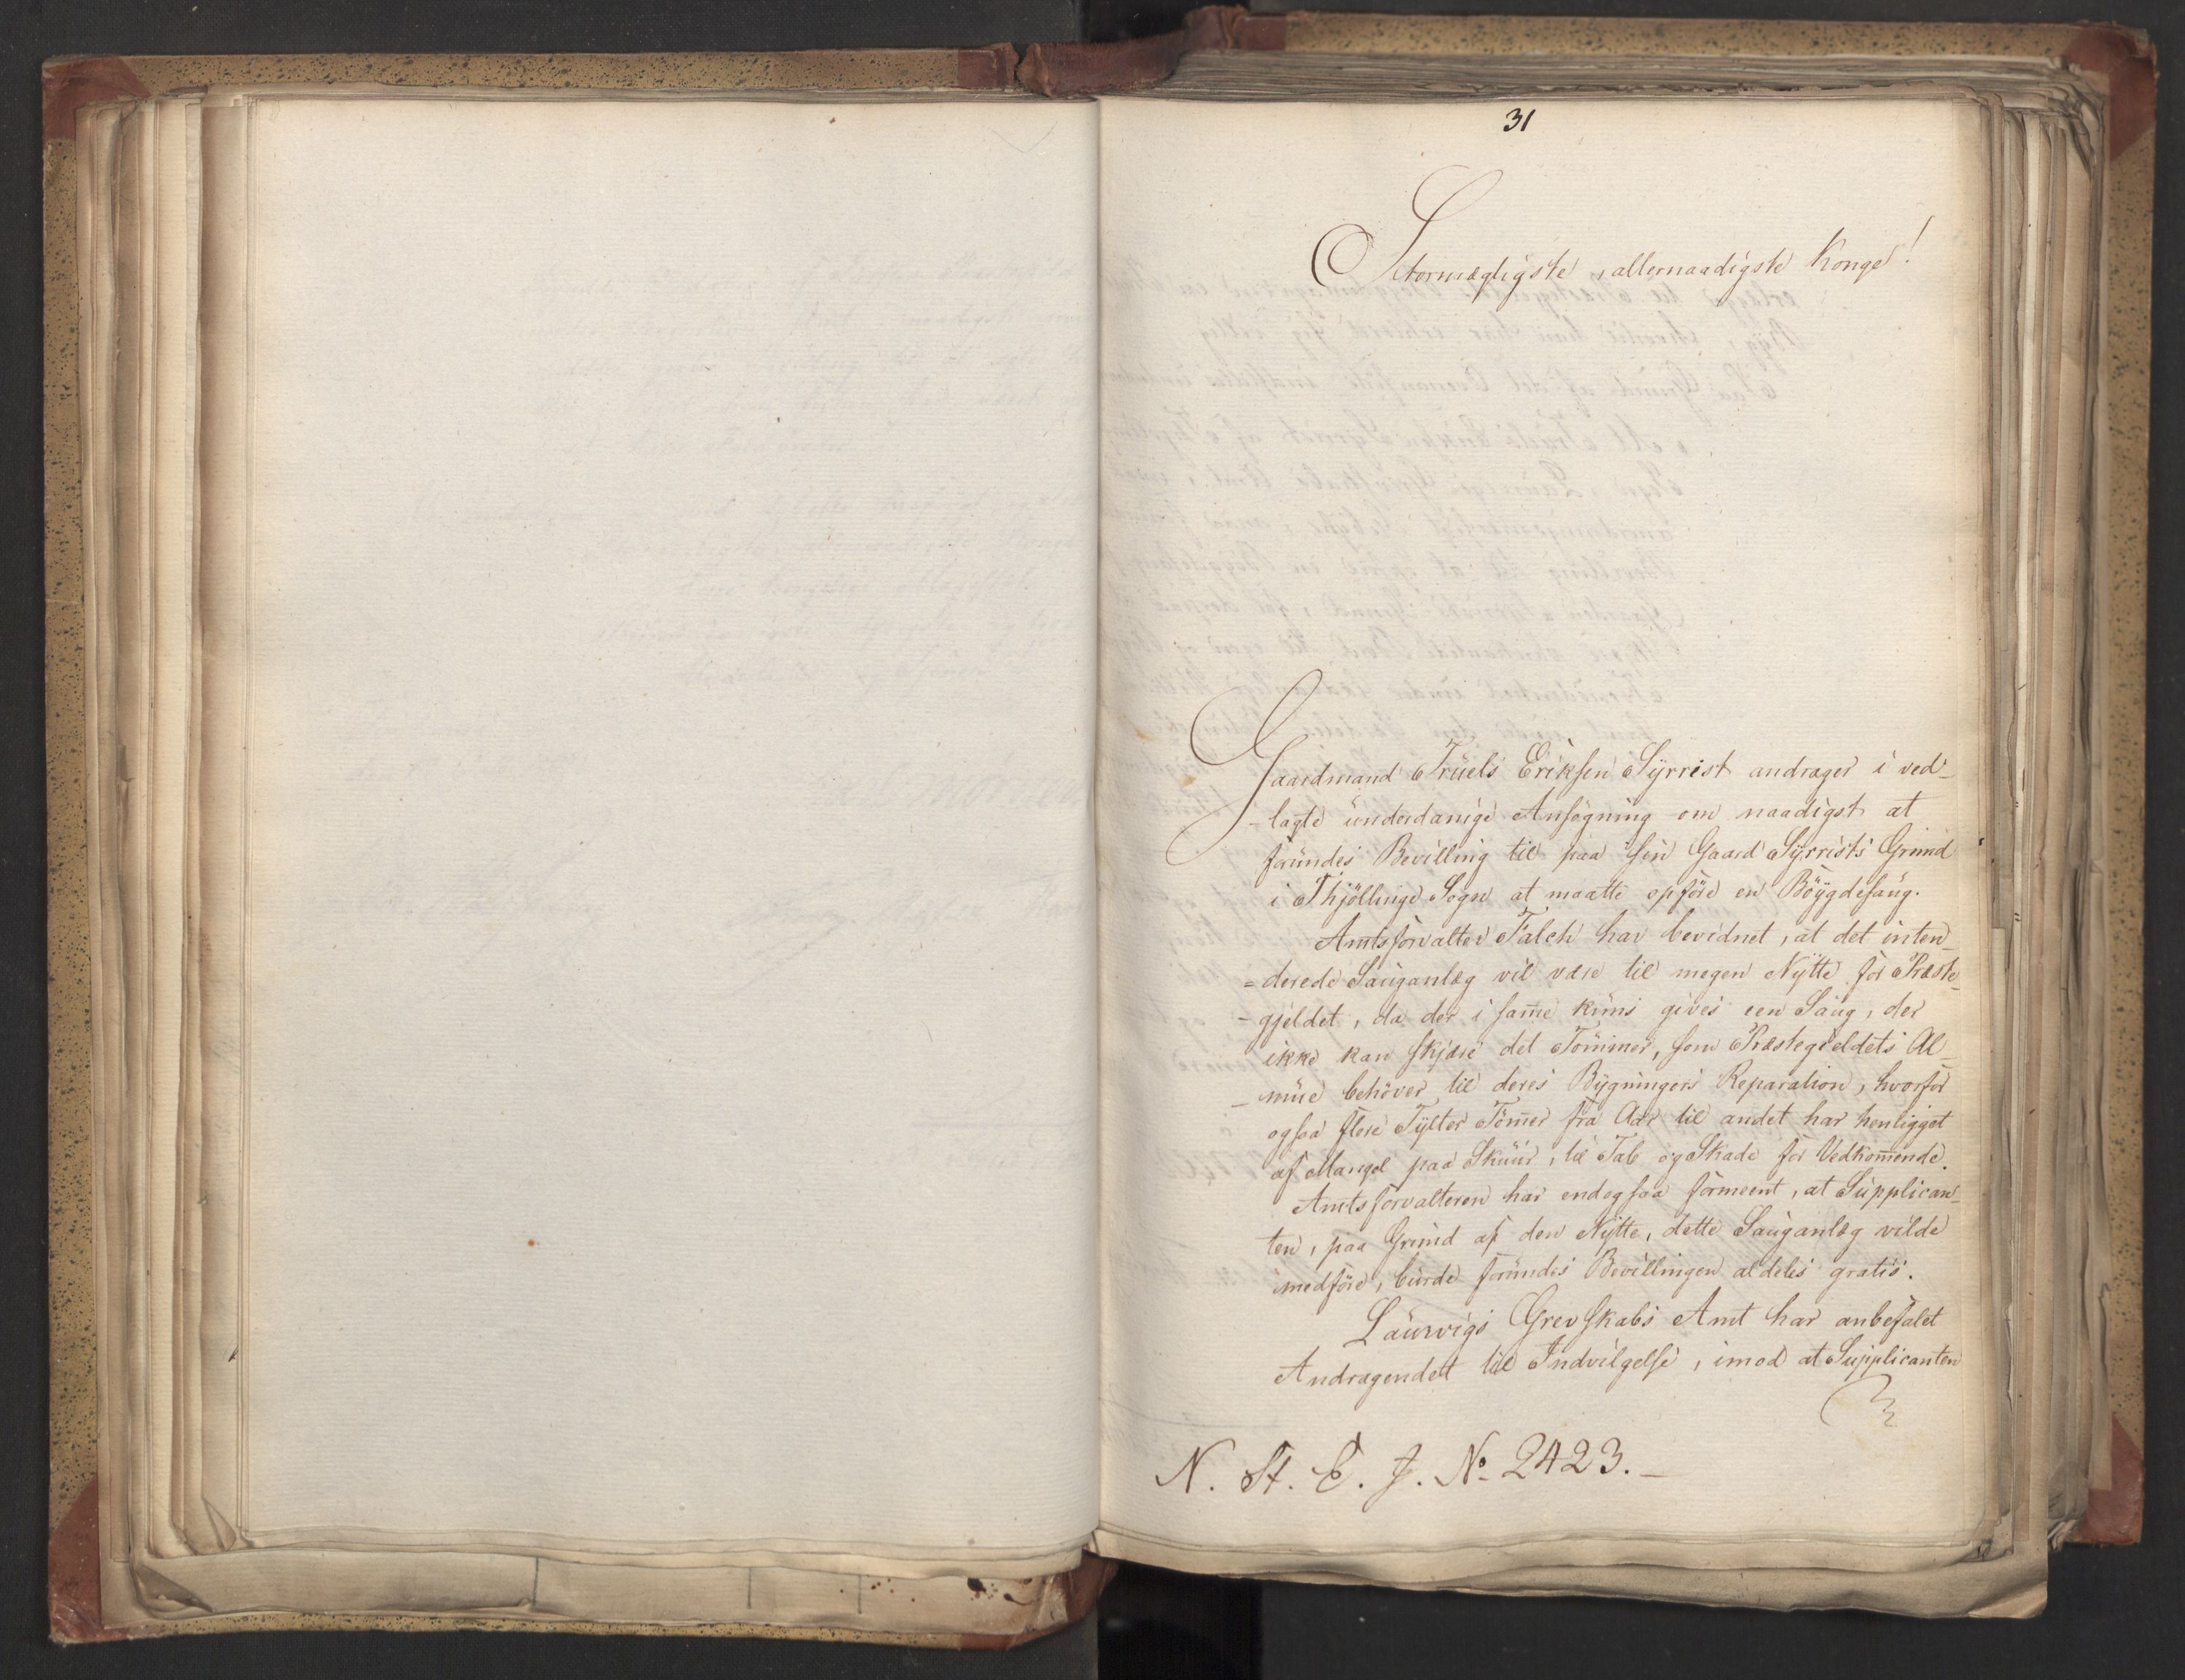 31
Stormægtigste, allernaadigste Konge!
Gaardmand Truels Eriksen Syrrist andrager i ved-
-lagte underdanige Ansøgning om naadigst at
forundes Bevilling til paa sin Gaard Syrrists Grund
i Thjöllinge Sogn at maatte opföre en Böygdesaug.
Amtsforvalter Falch har bevidnet, at det inten-
=derede Sauganlæg vil være til megen Nytte for Præste-
-gjeldet, da der i samme kuns gives een Saug, der
ikke kan skjære det Tömmer, som Præstegieldets Al-
-mue behöver til deres Bygningers Reparation, hvorfor
ogsaa flere Tylter Tömmer fra Aar til andet har henligget
af Mangel paa Skuur, til Tab og Skade for Vedkommende.
Amtsforvalteren har endogsaa formeent, at Supplican-
ten, paa Grund af den Nytte, dette Sauganlæg vilde
medföre, burde forundes Bevillingen aldeles gratis.
Laurvigs Grevskabs Amt har anbefalet
Andragendet til Indvilgelse, imod at Supplicanten
N. St. E. J. No 2423.-